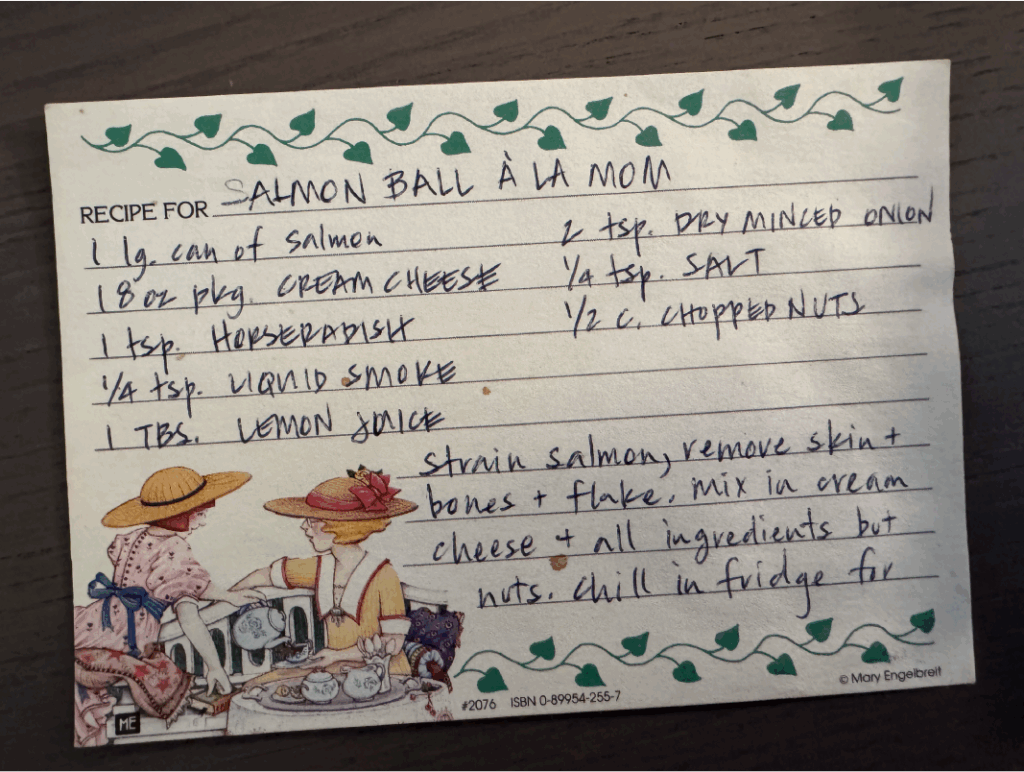 RECIPE FOR SALMON BALL À LA MOM
1 lg. can of salmon
1 8 oz pkg. CREAM CHEESE
1 tsp. HORSERADISH
1/4 tsp. LIQUID SMOKE
1 TBS. LEMON JUICE
2 tsp. DRY MINCED ONION
1/4 tsp. SALT
1/2 C. CHOPPED NUTS
strain salmon, remove skin +
bones + flake. mix in cream
cheese + all ingredients but
nuts. chill in fridge for
ME
#2076 ISBN 0-89954-255-7
© Mary Engelbreit